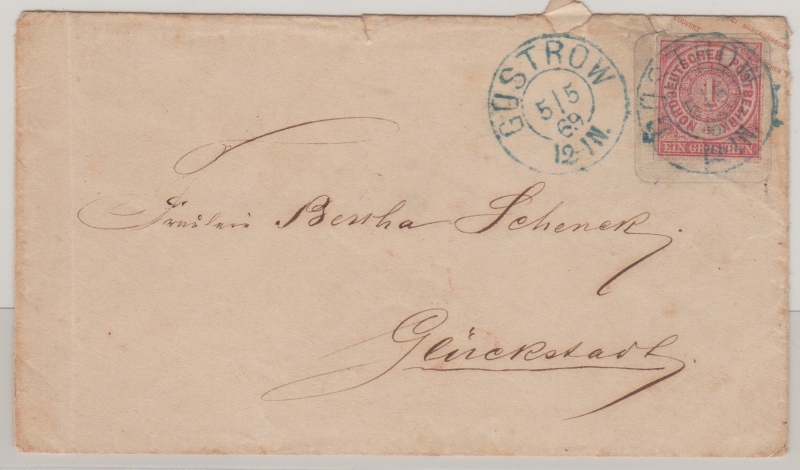 GÜSTROW
5/5
69
12-1N.
NORDDEUTSCHER POSTBEZIRK
1
EIN GROSCHEN
Fräulein Bertha Schenck
Glückstadt